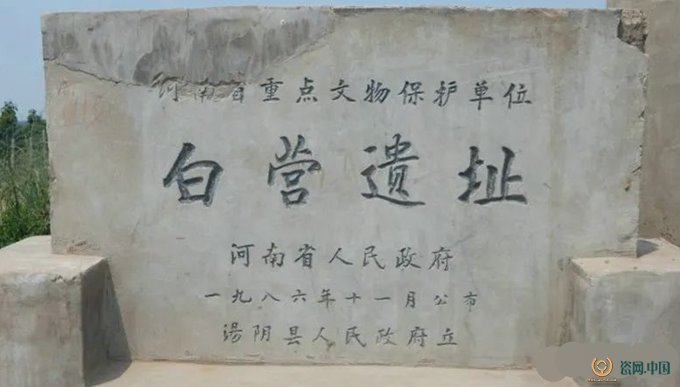 河南省重点文物保护单位
白营遗址
河南省人民政府
一九八六年十一月公布
汤阴县人民政府立
瓷网.中国